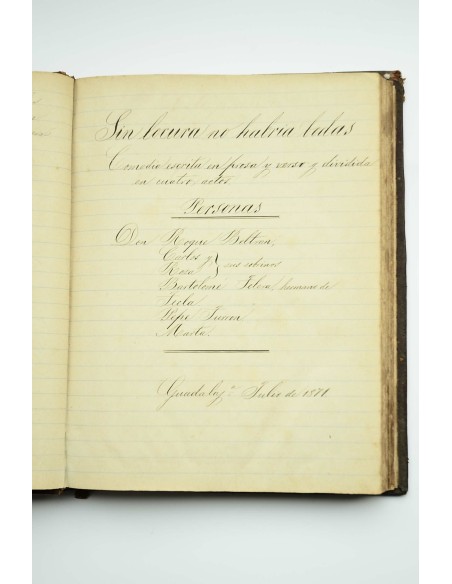 Sin locura no habria bodas
Comedia escrita en prosa y verso y dividida
en cuatro actos
Personas
Don Roque Beltran,
Carlos y
Rosa } sus sobrinos
Bartolomé hermano de
Tecla
Pepe
Marta.
Guadalaj.ª Julio de 1871